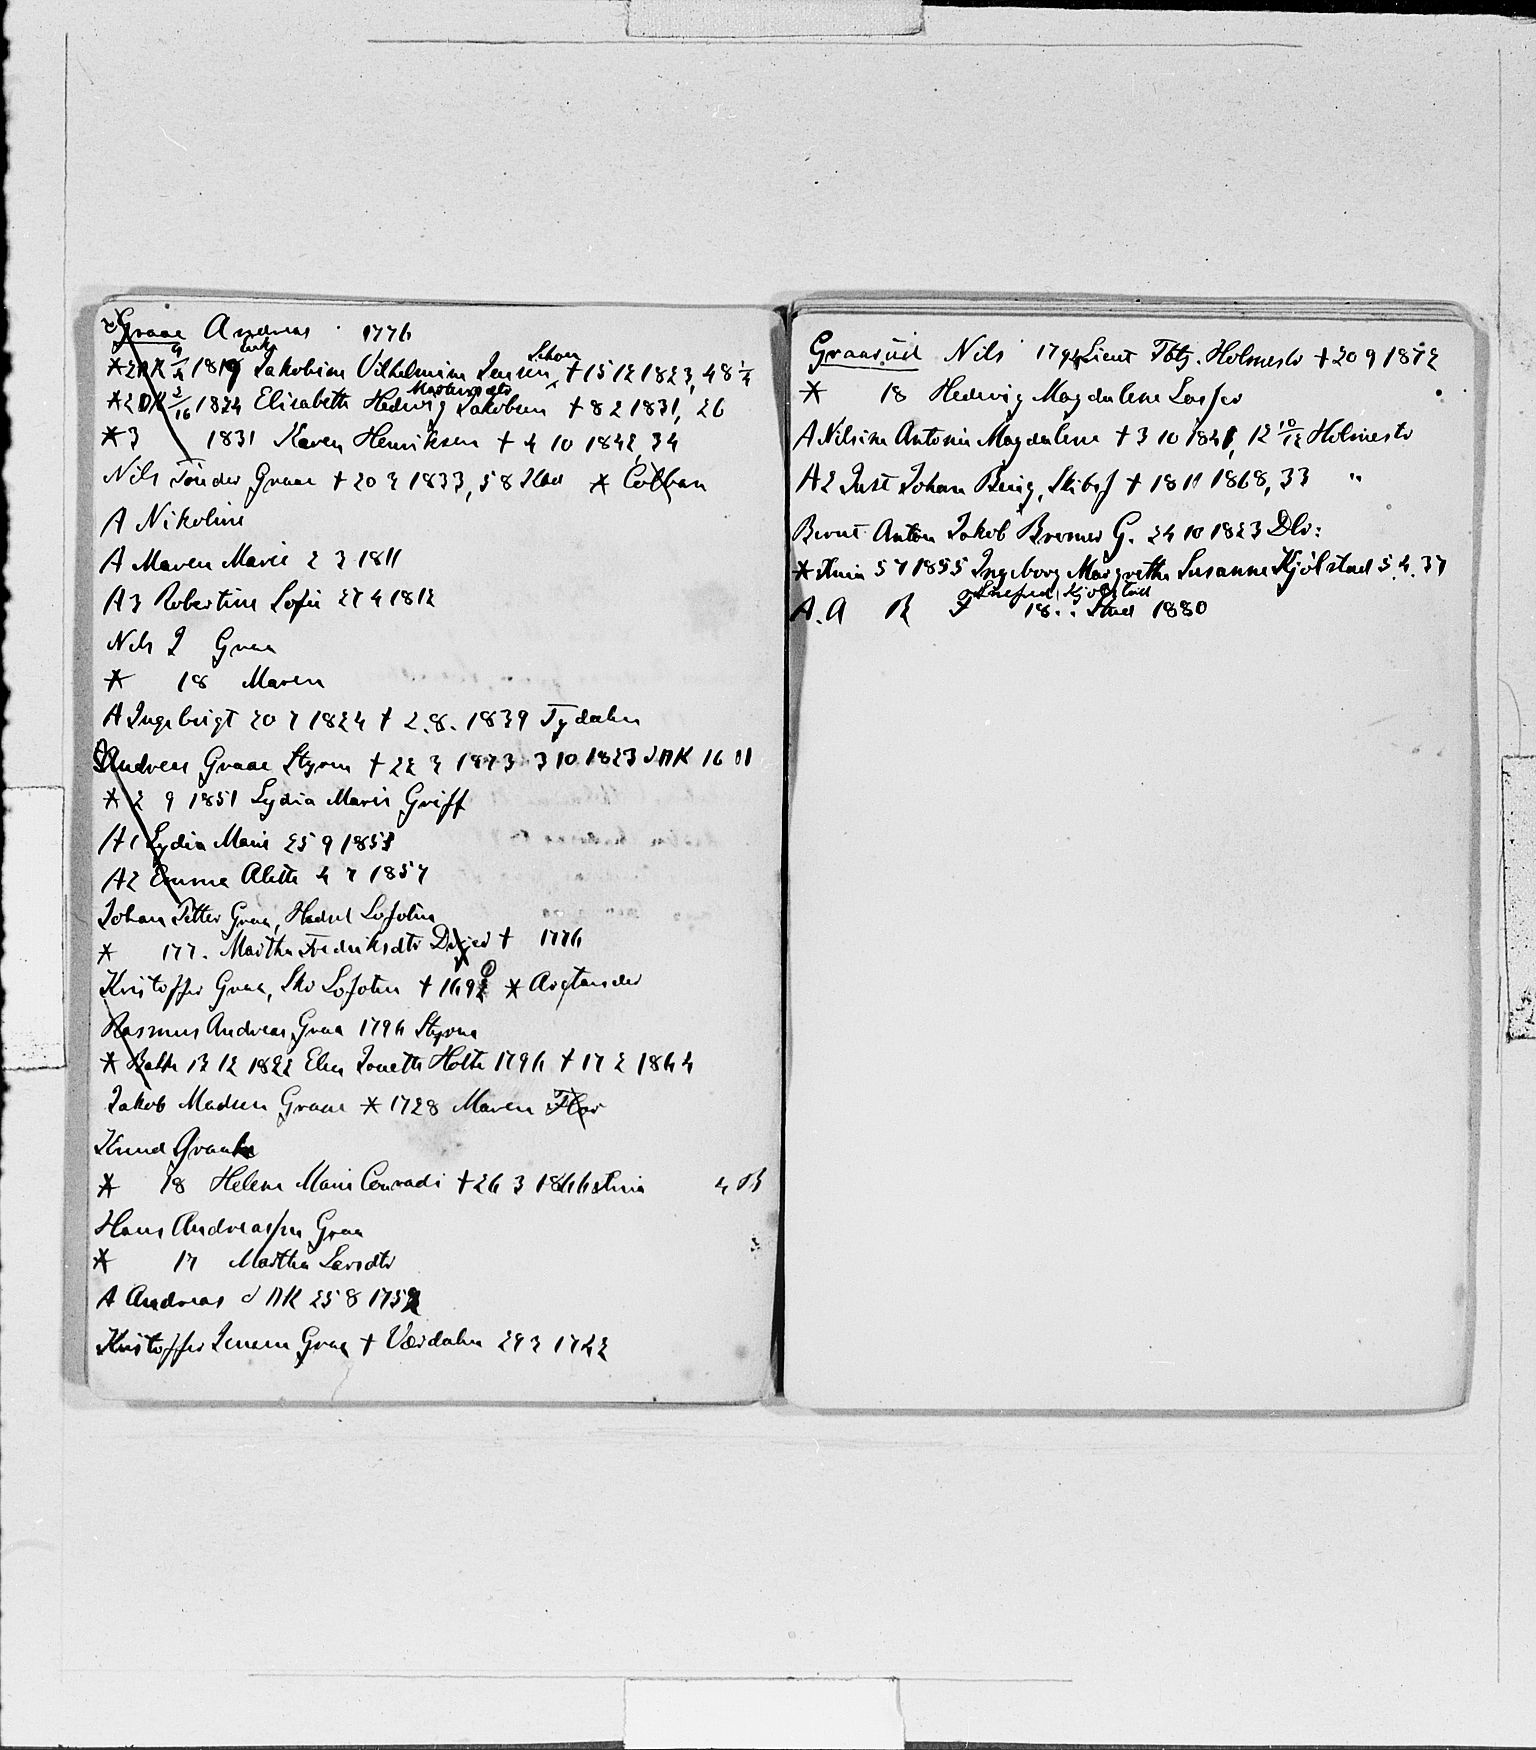 Graae Andreas 1776
* 2 DK 9/4 1819 Enke Jakobine Vilhelmine Jensen Schou + 15 12 1823, 48 1/4
* 2 DK 2/16 1824 Elisabeth Hedvig Martinusdtr Jakobsen + 8 2 1831, 26
* 3 1831 Karen Henriksen + 4 10 1842, 34
Nils Tønder Graae + 20 3 1833, 58 * Colban
A Nikoline
A Maren Marie 2 3 1811
A 3 Robertine Sofie 27 4 1812
Nils J Graa
* 18 Maren
A Ingebrigt 20 7 1824 + 2.8. 1839 Tydalen
Andreas Graae Styrm + 22 3 1873 3 10 1823 d DK 16 11
* 2 9 1851 Lydia Marie Griff
A 1 Lydia Marie 25 9 1853
A2 Emma Alette 4 7 1857
Johan Petter Graa, Hadsel Lofoten
* 177. Martha Fredriksdtr + 1776
Kristoffer Graa, Skr Lofoten + 169 * Arctander
Rasmus Andreas Graa 1796 Styrm
* 13 12 1822 Elen Jonette Holte 1796 + 17 2 1864
Jakob Madsen Graae * 1728 Maren Flor
Knud Graa
* 18 Helene Marie Conradi + 26 3 1866 Xnia 4 B
Hans Andreassen Graa
* 17 Martha Larsdtr
A Andreas d DK 25 8 175
Kristoffer Jensen Graa + Værdalen 29 3 1742
Graarud Nils 1794 Lieut Tbtj. Holmestr + 20 9 1872
* 18 Hedevig Magdalene
A Nilsine Antonie Magdalene + 3 10 1841, 12 10/12 Holmestr
A2 Just Johan Bing, Skibsf + 18 11 1868, 33 "
Bernt Anton Jakob Bremer G. 24 10 1823 Dlr:
* Xnia 5 7 1855 Ingeborg Margrethe Susanne Kjølstad 5.4.37
A. A B F Kjølstad 18.. Stud 1880